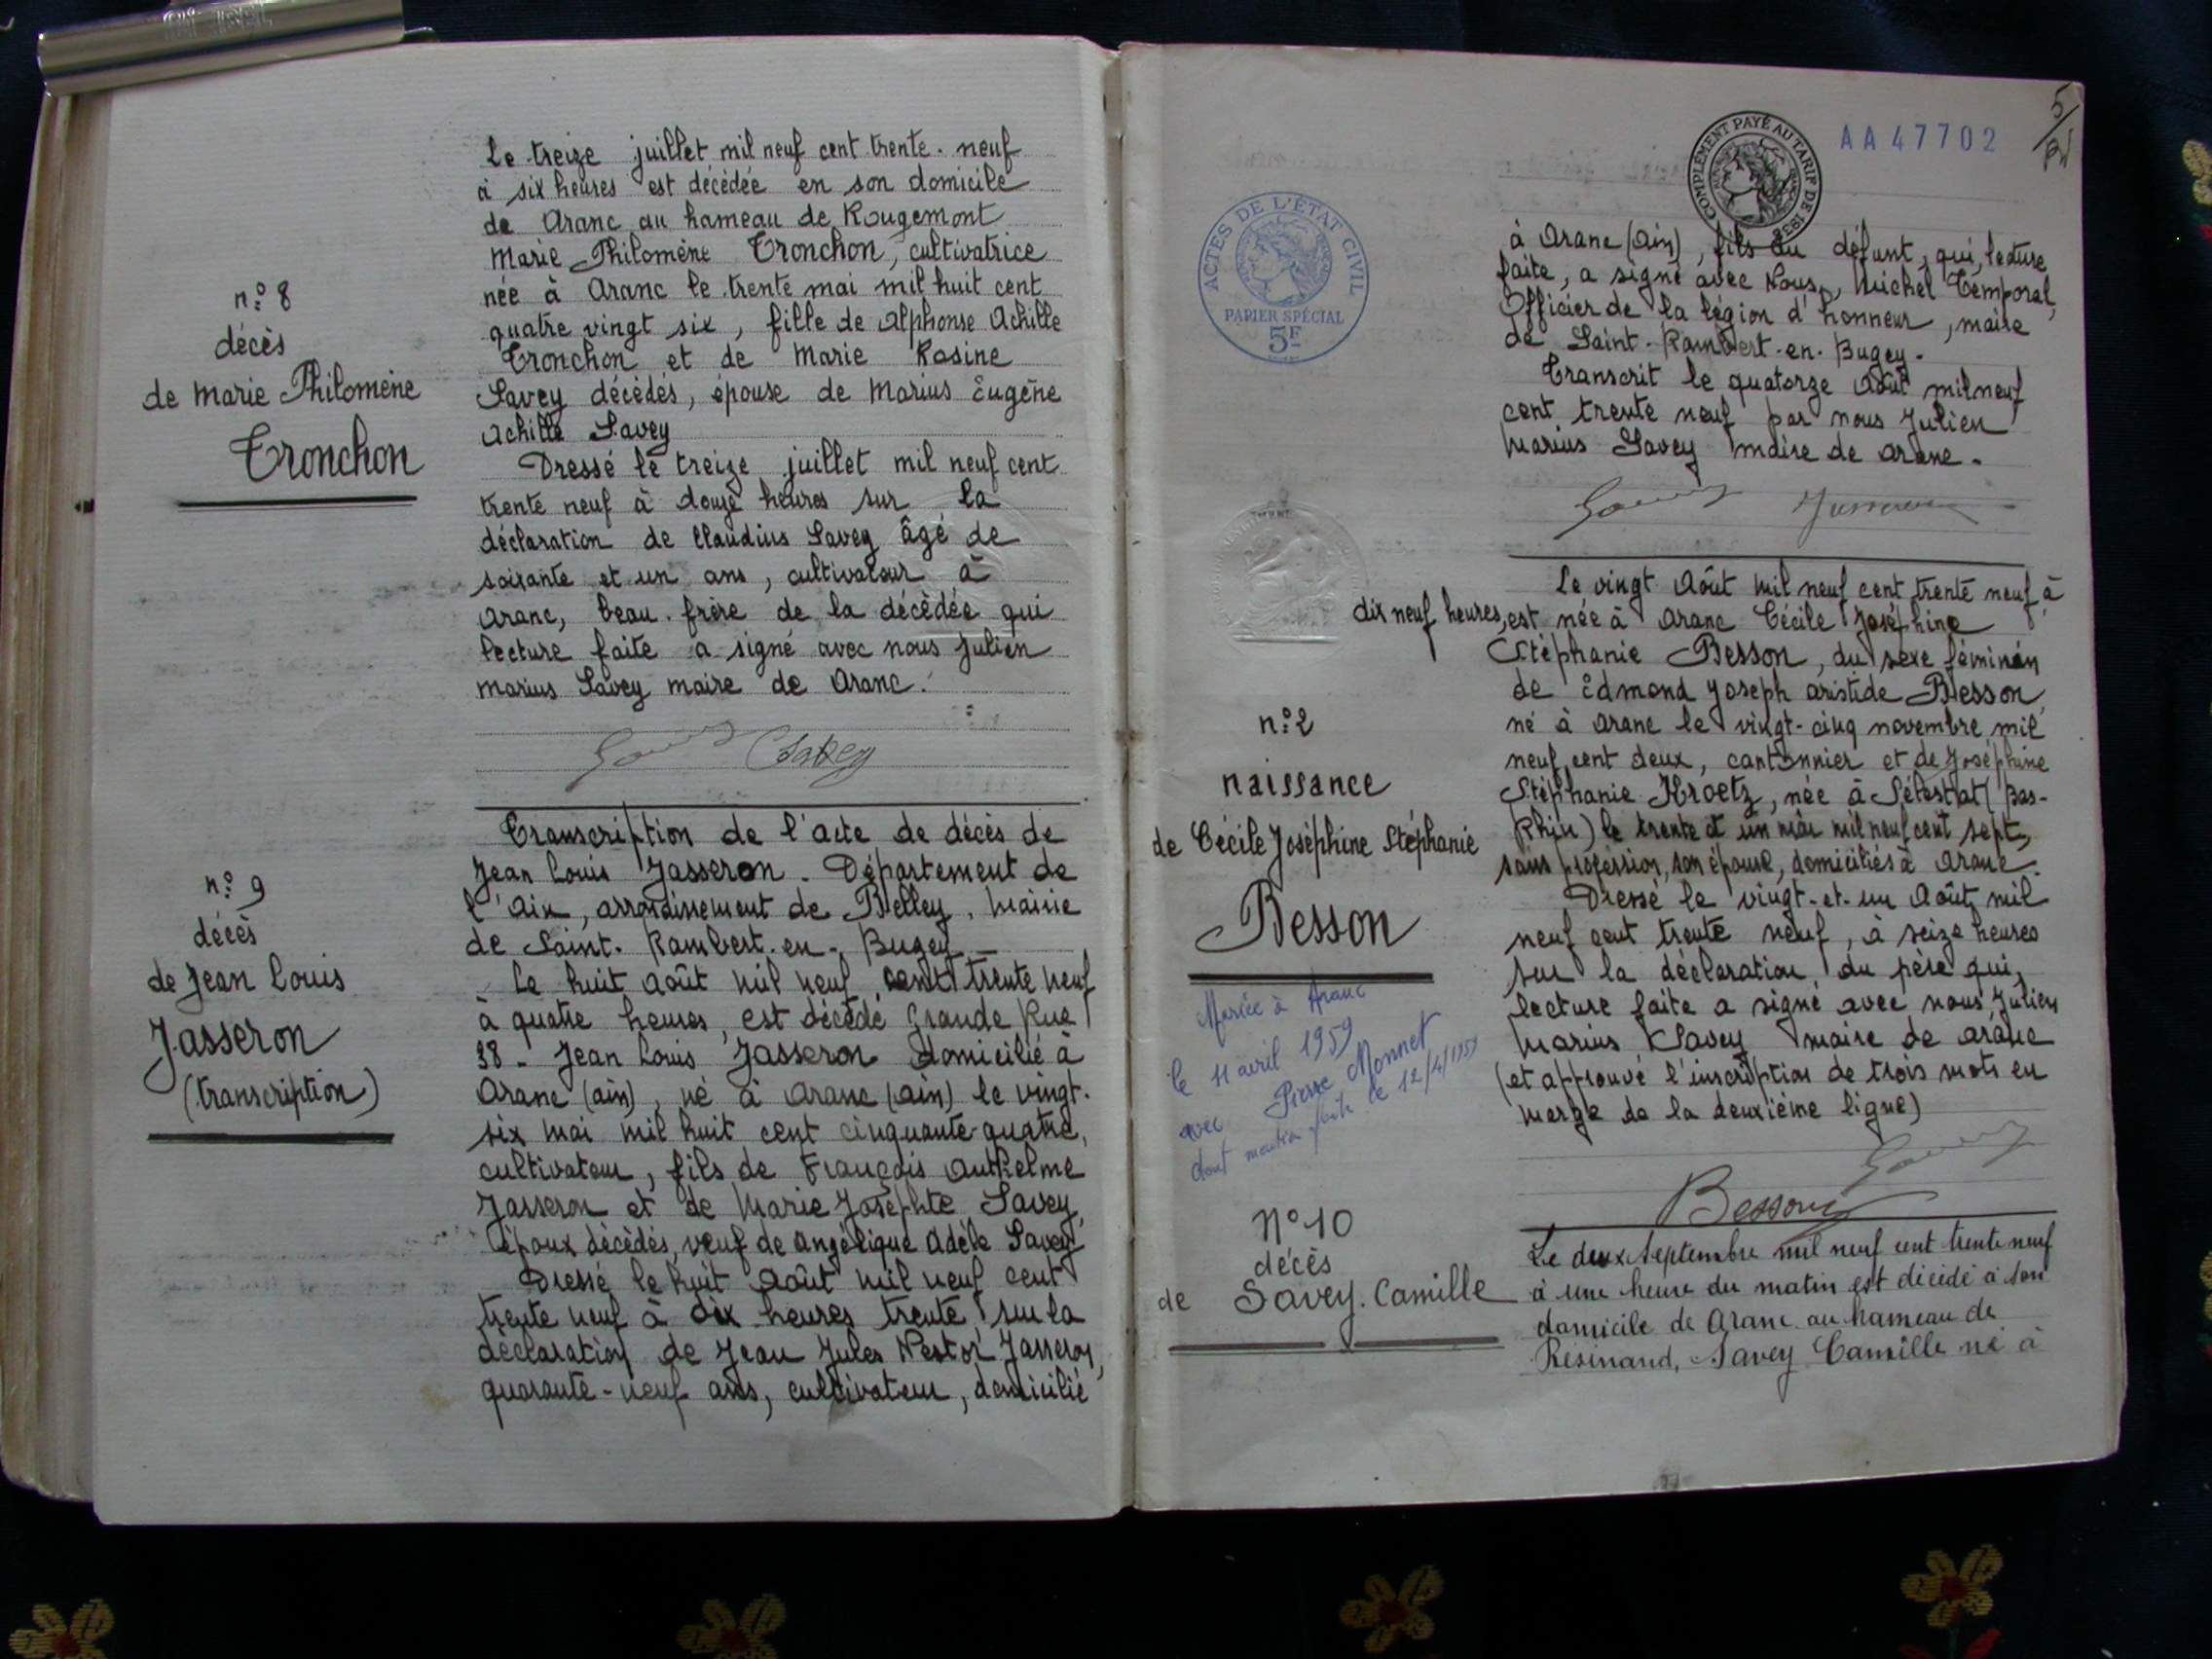 n° 8
décès
de Marie Philomène
Tronchon
Le treize juillet mil neuf cent trente-neuf
à six heures est décédée en son domicile
de Aranc au hameau de Rougemont
Marie Philomène Tronchon, cultivatrice
née à Aranc le trente mai mil huit cent
quatre vingt six, fille de Alphonse Achille
Tronchon et de Marie Rosine
Savey décédés, épouse de Marius Eugène
Achille Savey
Dressé le treize juillet mil neuf cent
trente neuf à douze heures sur la
déclaration de Claudius Savey âgé de
soixante et un ans, cultivateur à
Aranc, beau-frère de la décédée qui
lecture faite a signé avec nous Julien
Marius Savey maire de Aranc.
Savey
n° 9
décès
de Jean Louis
Jasseron
(transcription)
Transcription de l'acte de décès de
Jean Louis Jasseron. Département de
l'Ain, arrondissement de Belley. Mairie
de Saint-Rambert-en-Bugey -
Le huit Août mil neuf cent trente neuf
à quatre heures, est décédé Grande Rue
38 - Jean Louis Jasseron domicilié à
Aranc (Ain), né à Aranc (Ain) le vingt-
six mai mil huit cent cinquante-quatre,
cultivateur, fils de François Anthelme
Jasseron et de Marie Josephte Savey,
époux décédés, veuf de Angélique Adèle Savey
Dressé le huit Août mil neuf cent
trente neuf à dix heures trente sur la
déclaration de Jean Jules Nestor Jasseron,
quarante-neuf ans, cultivateur, domicilié
5
COMPLÉMENT PAYÉ AU TARIF DE 1938
AA 47702
ACTES DE L'ÉTAT CIVIL
PAPIER SPÉCIAL
5F
à Aranc (Ain), fils du défunt, qui, lecture
faite, a signé avec Nous, Michel Temporal,
Officier de la légion d'honneur, maire
de Saint-Rambert-en-Bugey.
Transcrit le quatorze Août mil neuf
cent trente neuf par nous Julien
Marius Savey maire de Aranc.
n° 2
naissance
de Cécile Joséphine Stéphanie
Besson
Le vingt Août mil neuf cent trente neuf à
dix neuf heures, est née à Aranc Cécile Joséphine
Stéphanie Besson, du sexe féminin
de Edmond Joseph Aristide Besson,
né à Aranc le vingt-cinq novembre mil
neuf cent deux, cantonnier et de Joséphine
Stéphanie Kroetz, née à Sélestat (Bas-
Rhin) le trente et un mai mil neuf cent sept,
sans profession, son épouse, domiciliés à Aranc.
Dressé le vingt-et-un Août mil
neuf cent trente neuf, à seize heures
sur la déclaration du père qui,
lecture faite a signé avec nous, Julien
Marius Savey maire de Aranc
(et approuvé l'inscription de trois mots en
marge de la deuxième ligne)
Besson
Mariée à Aranc
le 11 avril 1959
avec Pierre Monnet
dont mention faite le 12/4/1959
N° 10
décès
de Savey. Camille
Le deux septembre mil neuf cent trente neuf
à une heure du matin est décédé à son
domicile de Aranc au hameau de
Résinand, Savey Camille né à